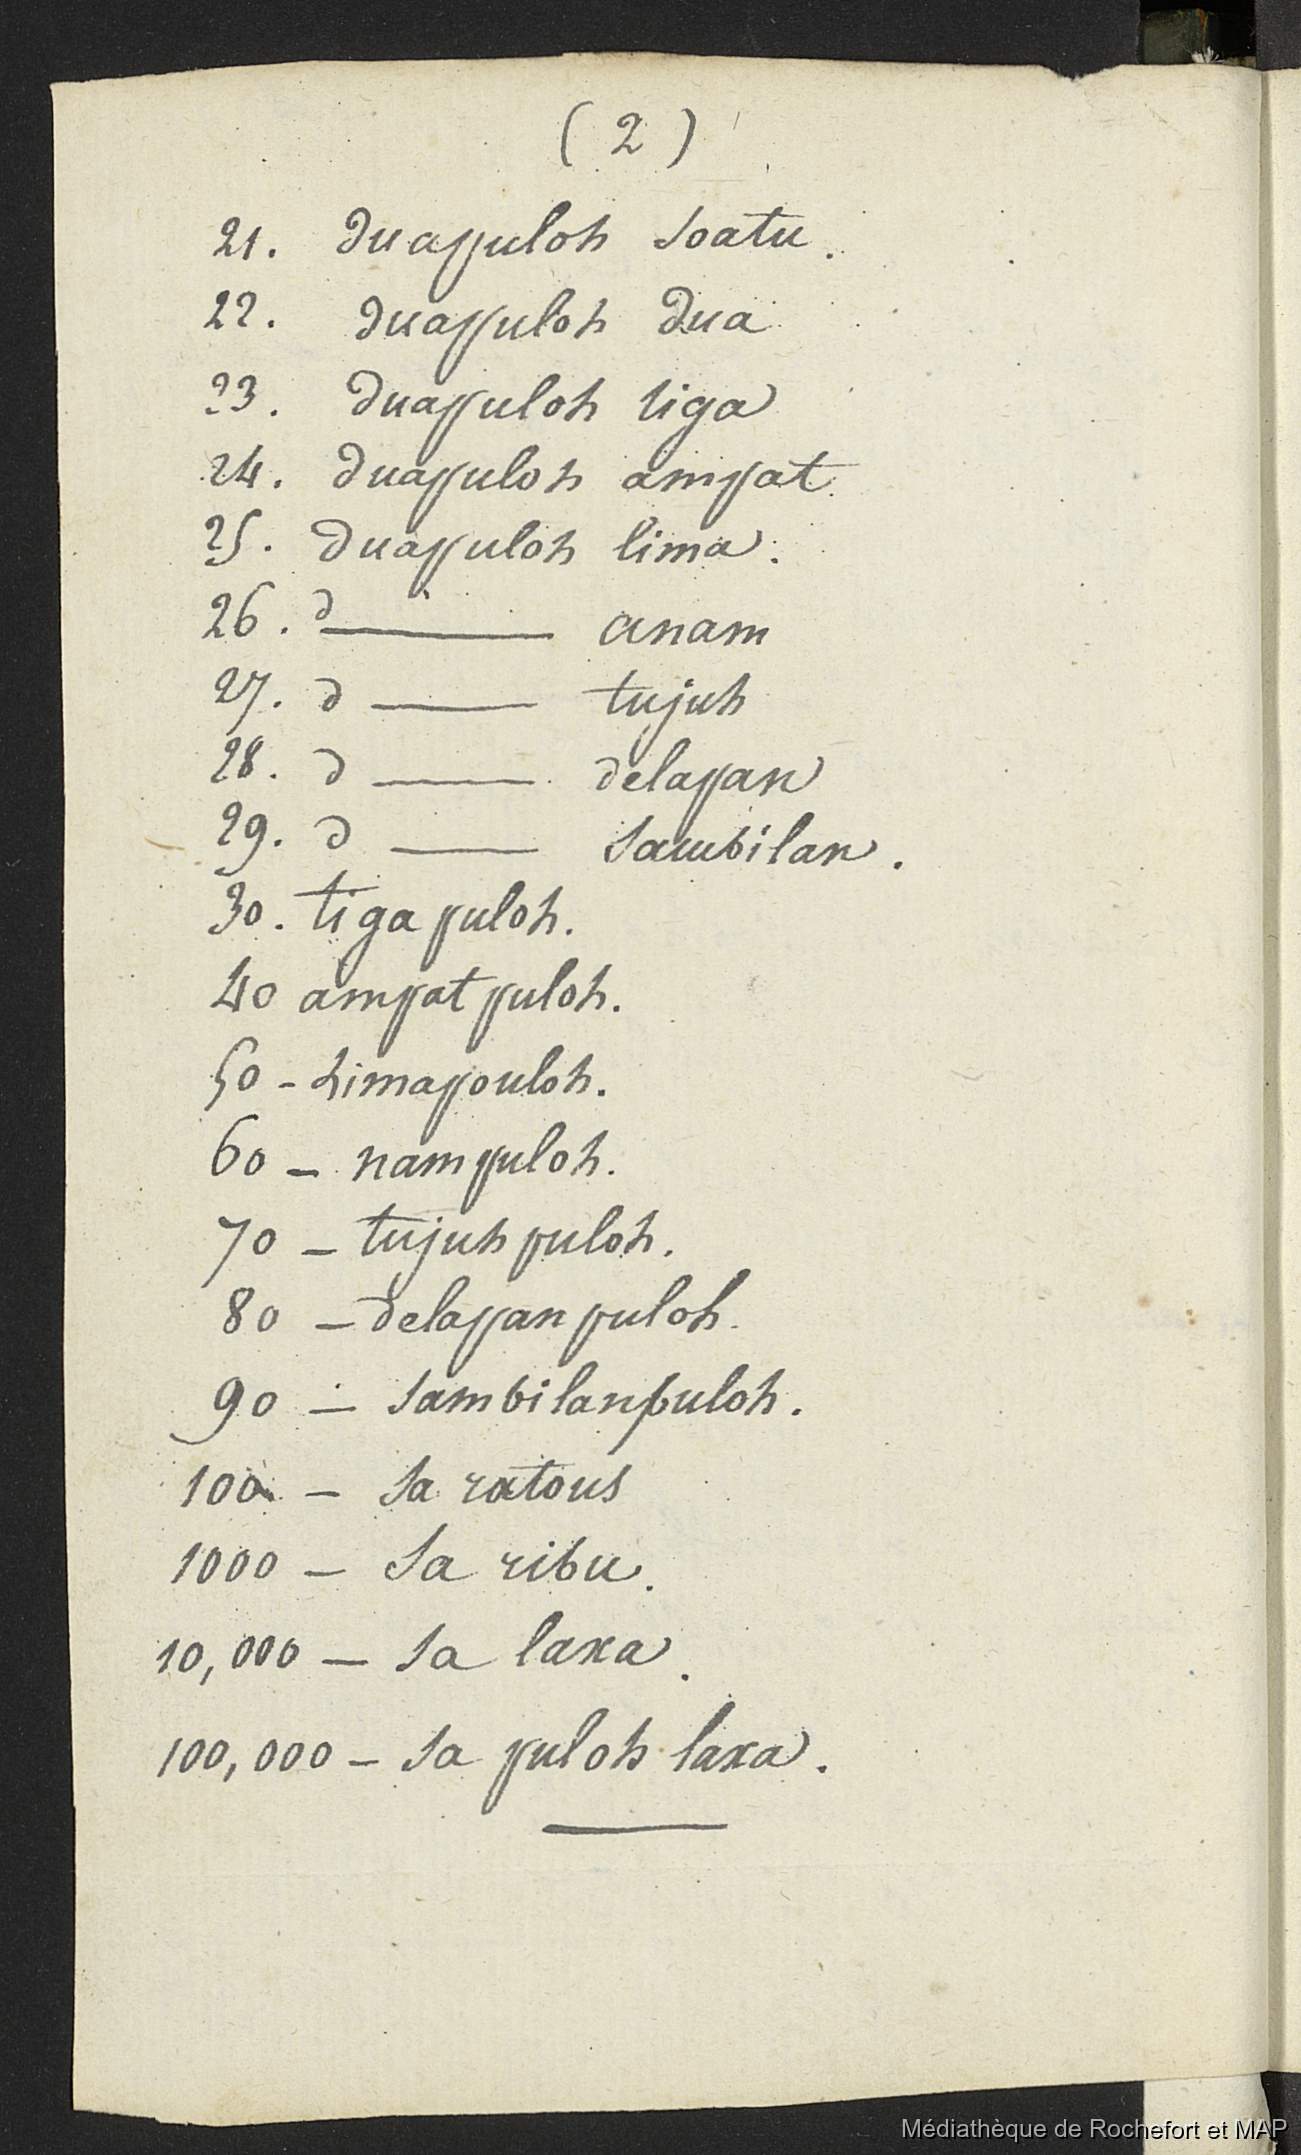 ( 2 )
21. duapuloh soatu.
22. duapuloh dua
23. duapuloh tiga
24. duapuloh ampat
25. duapuloh lima.
26. d —— anam
27. d —— tujuh
28. d —— delapan
29. d —— sambilan.
30. tiga puloh.
40 ampat puloh.
50 - limapouloh.
60 - nampuloh.
70 - tujuh puloh.
80 - delapan puloh.
90 - sambilanpuloh.
100 - sa ratous
1000 - sa ribu.
10,000 - sa laxa.
100,000 - sa puloh laxa.
Médiathèque de Rochefort et MAP